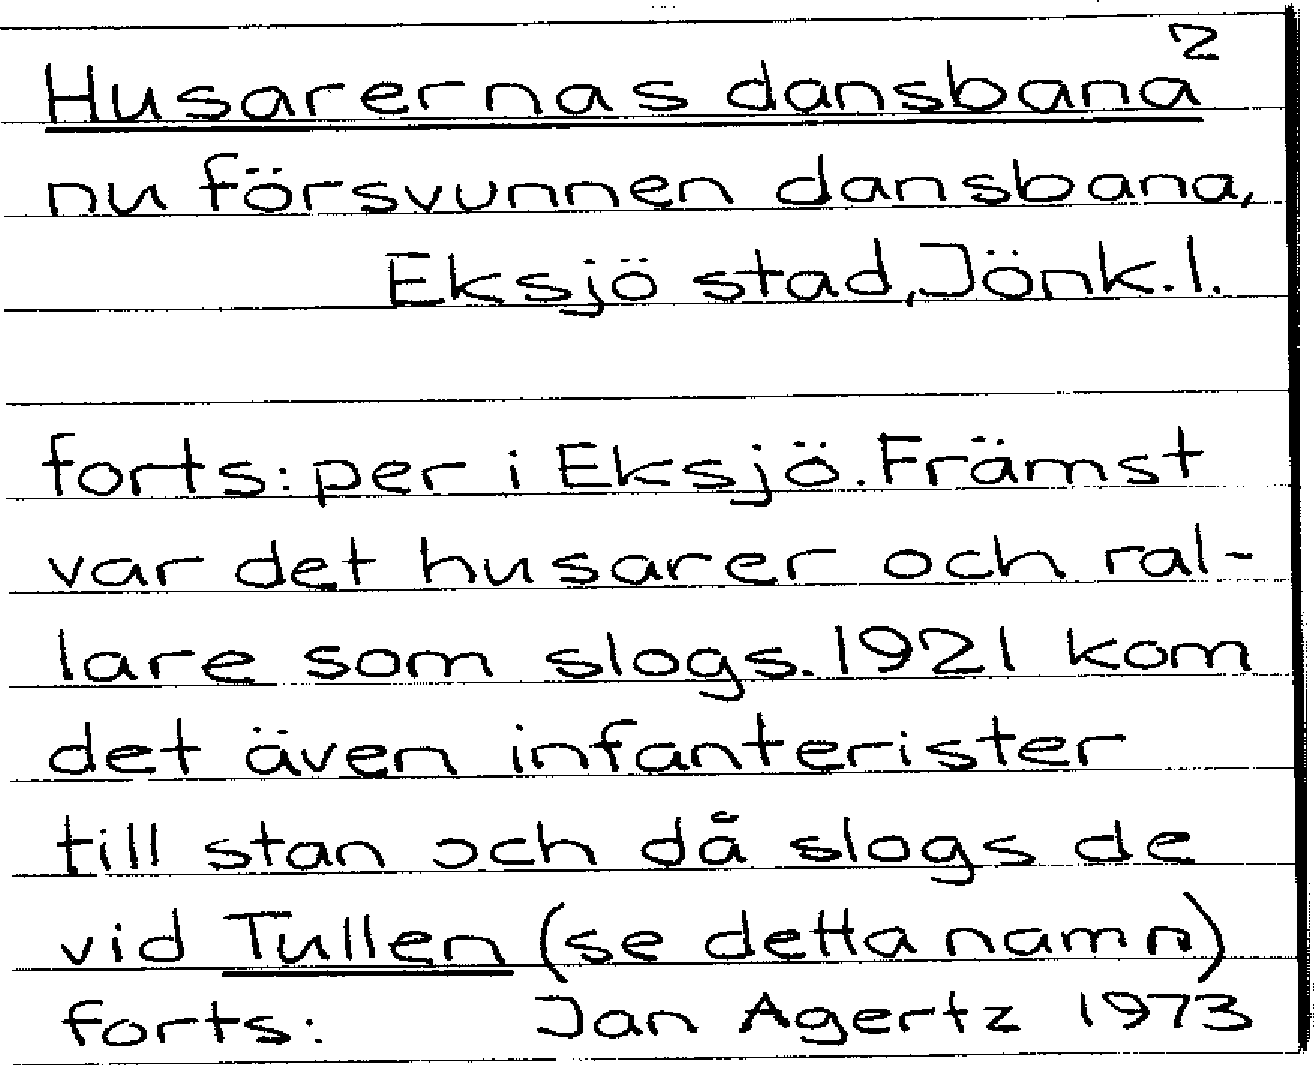 2
Husarernas dansbana
nu försvunnen dansbana,
Eksjö stad, Jönk.l.
forts: per i Eksjö. Främst
var det husarer och ral-
lare som slogs. 1921 kom
det även infanterister
till stan och då slogs de
vid Tullen (se detta namn)
forts: Jan Agertz 1973